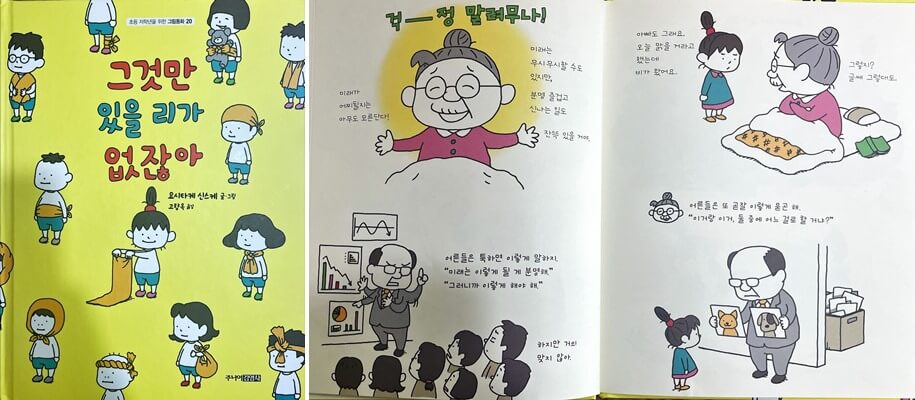 초등 저학년을 위한 그림동화 20
그것만
있을 리가
없잖아
요시타케 신스케 글·그림
고향옥 옮김
주니어김영사
걱——정 말려무나!
미래는
무시무시할 수도
있지만,
분명 즐겁고
신나는 일도
잔뜩 있을 거야.
미래가
어찌될지는
아무도 모른단다!
어른들은 툭하면 이렇게 말하지.
"미래는 이렇게 될 게 분명해."
"그러니까 이렇게 해야 해."
하지만 거의
맞지 않아.
아빠도 그래요.
오늘 맑을 거라고
했는데
비가 왔어요.
그렇지?
글쎄 그렇대도.
어른들은 또 곧잘 이렇게 묻곤 해.
"이거랑 이거, 둘 중에 어느 걸로 할 거냐?"